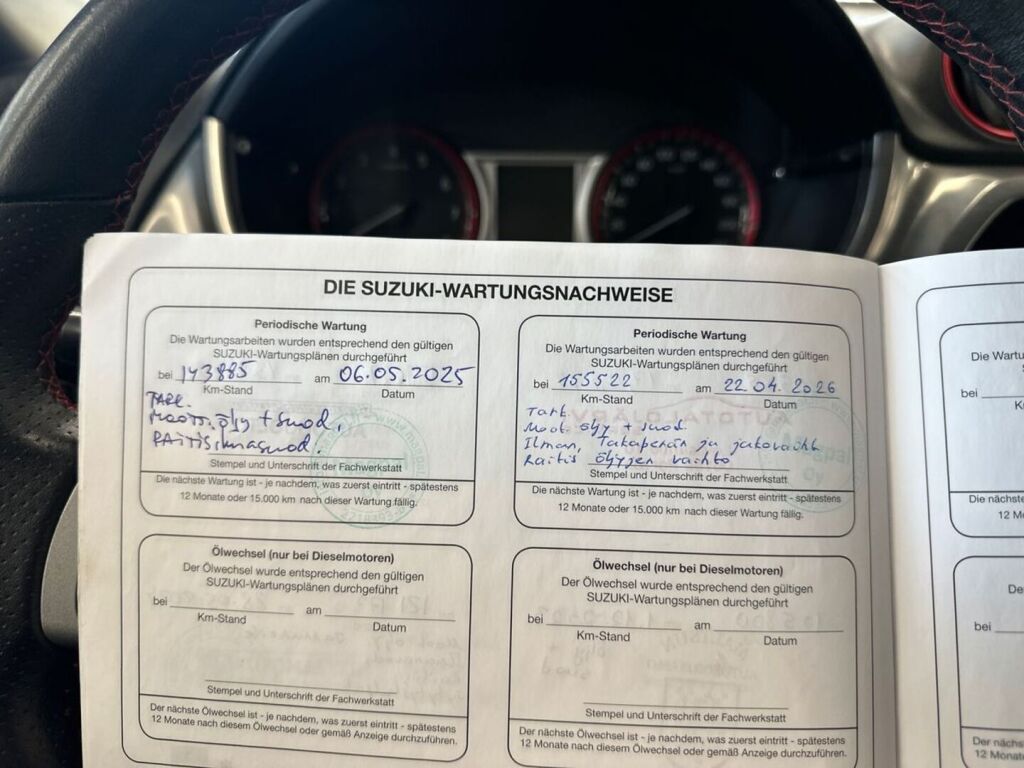 DIE SUZUKI-WARTUNGSNACHWEISE
Periodische Wartung
Die Wartungsarbeiten wurden entsprechend den gültigen
SUZUKI-Wartungsplänen durchgeführt
bei 143885 am 06.05.2025
Km-Stand Datum
TARK.
Moott. öljy + suod,
RAITISilmasuod.
Stempel und Unterschrift der Fachwerkstatt
Die nächste Wartung ist - je nachdem, was zuerst eintritt - spätestens
12 Monate oder 15.000 km nach dieser Wartung fällig.
Periodische Wartung
Die Wartungsarbeiten wurden entsprechend den gültigen
SUZUKI-Wartungsplänen durchgeführt
bei 155522 am 22.04.2026
Km-Stand Datum
Tark.
Moot. öljy + suod.
Ilman, Takaperän ja jakovaiht
Raitis öljyjen vaihto
Stempel und Unterschrift der Fachwerkstatt
Die nächste Wartung ist - je nachdem, was zuerst eintritt - spätestens
12 Monate oder 15.000 km nach dieser Wartung fällig.
Ölwechsel (nur bei Dieselmotoren)
Der Ölwechsel wurde entsprechend den gültigen
SUZUKI-Wartungsplänen durchgeführt
bei am
Km-Stand Datum
Stempel und Unterschrift der Fachwerkstatt
Der nächste Ölwechsel ist - je nachdem, was zuerst eintritt - spätestens
12 Monate nach diesem Ölwechsel oder gemäß Anzeige durchzuführen.
Ölwechsel (nur bei Dieselmotoren)
Der Ölwechsel wurde entsprechend den gültigen
SUZUKI-Wartungsplänen durchgeführt
bei am
Km-Stand Datum
Stempel und Unterschrift der Fachwerkstatt
Der nächste Ölwechsel ist - je nachdem, was zuerst eintritt - spätestens
12 Monate nach diesem Ölwechsel oder gemäß Anzeige durchzuführen.
Die
bei
Die nächste
12
bei
Der nächs
12 Monate